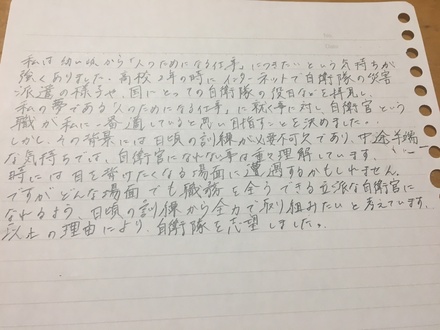 私は幼い頃から「人のためになる仕事」につきたいという気持ちが
強くありました。高校2年の時にインターネットで自衛隊の災害
派遣の様子や、国にとっての自衛隊の役目などを拝見し、
私の夢である「人のためになる仕事」に就く事に対し、自衛官という
職が私に一番適していると思い目指すことを決めました。
しかし、その背景には日頃の訓練が必要不可欠であり、中途半端
な気持ちでは、自衛官になれない事は重々理解しています。
時には目を背けたくなる場面に遭遇するかもしれません。
ですがどんな場面でも職務を全うできる立派な自衛官に
なれるよう、日頃の訓練から全力で取り組みたいと考えています。
以上の理由により、自衛隊を志望しました。